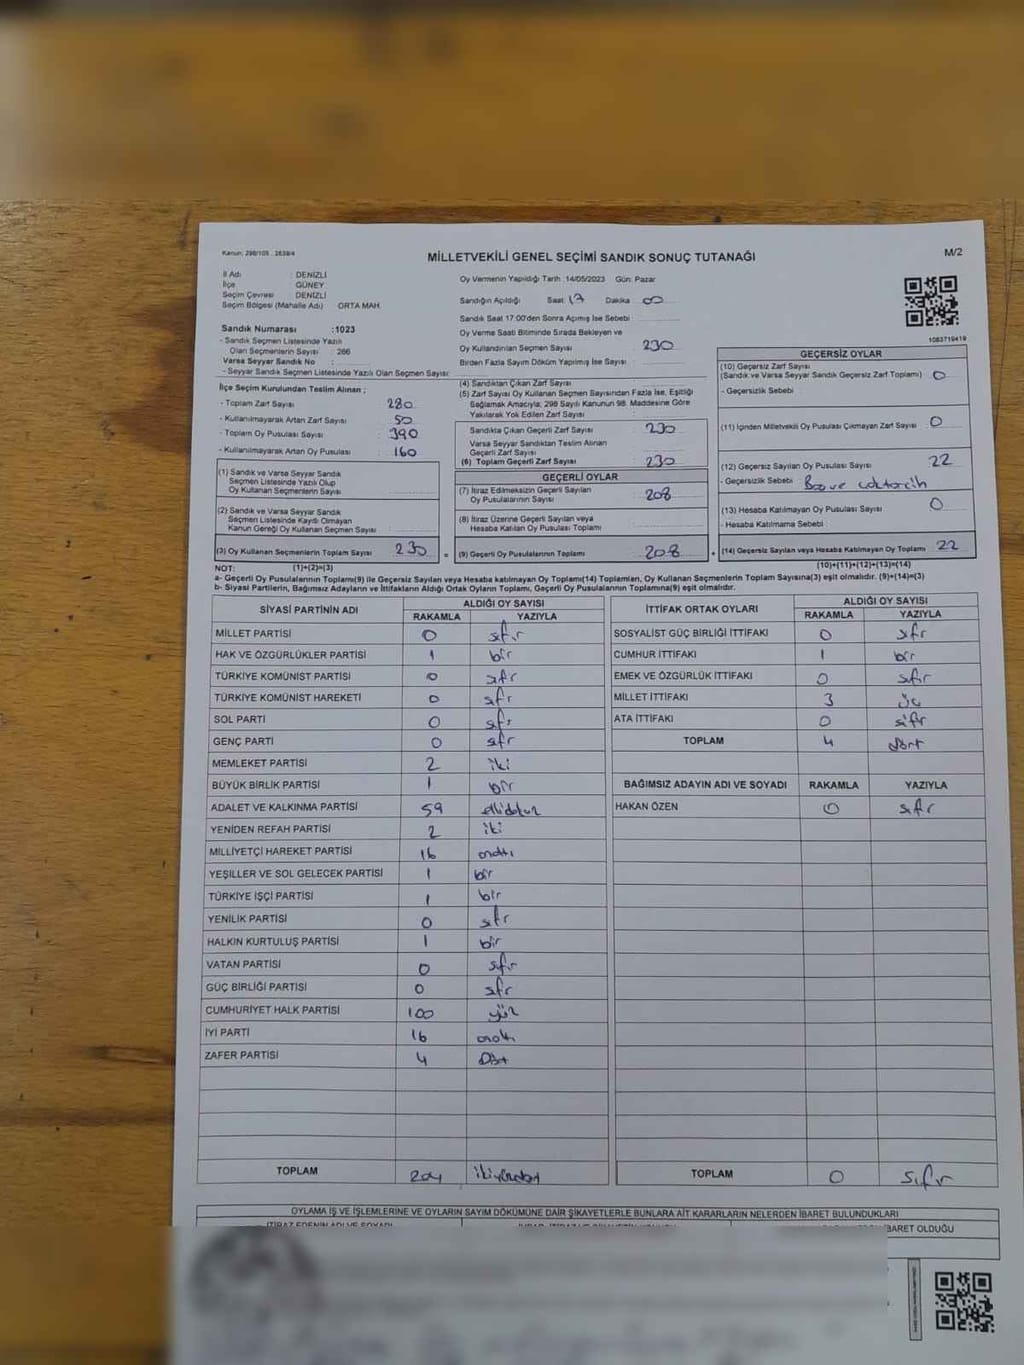 Kanun: 298/105 2839/4
MİLLETVEKİLİ GENEL SEÇİMİ SANDIK SONUÇ TUTANAĞI
M/2
İl Adı : DENİZLİ
İlçe : GÜNEY
Seçim Çevresi : DENİZLİ
Seçim Bölgesi (Mahalle Adı) : ORTA MAH.
Sandık Numarası :1023
- Sandık Seçmen Listesinde Yazılı
Olan Seçmenlerin Sayısı : 266
Varsa Seyyar Sandık No :
- Seyyar Sandık Seçmen Listesinde Yazılı Olan Seçmen Sayısı:
Oy Vermenin Yapıldığı Tarih :14/05/2023 Gün: Pazar
Sandığın Açıldığı Saat 17 Dakika 00
Sandık Saat 17:00'den Sonra Açılmış İse Sebebi :
Oy Verme Saati Bitiminde Sırada Bekleyen ve
Oy Kullandırılan Seçmen Sayısı : 230
Birden Fazla Sayım Döküm Yapılmış İse Sayısı :
1083719419
İlçe Seçim Kurulundan Teslim Alınan ;
- Toplam Zarf Sayısı : 280
- Kullanılmayarak Artan Zarf Sayısı : 50
- Toplam Oy Pusulası Sayısı : 390
- Kullanılmayarak Artan Oy Pusulası : 160
(1) Sandık ve Varsa Seyyar Sandık
Seçmen Listesinde Yazılı Olup
Oy Kullanan Seçmenlerin Sayısı
(2) Sandık ve Varsa Seyyar Sandık
Seçmen Listesinde Kayıtlı Olmayan
Kanun Gereği Oy Kullanan Seçmen Sayısı
(3) Oy Kullanan Seçmenlerin Toplam Sayısı 230 =
(4) Sandıktan Çıkan Zarf Sayısı
(5) Zarf Sayısı Oy Kullanan Seçmen Sayısından Fazla İse, Eşitliği
Sağlamak Amacıyla, 298 Sayılı Kanunun 98. Maddesine Göre
Yakılarak Yok Edilen Zarf Sayısı :
Sandıkta Çıkan Geçerli Zarf Sayısı : 230
Varsa Seyyar Sandıktan Teslim Alınan
Geçerli Zarf Sayısı
(6) Toplam Geçerli Zarf Sayısı : 230
GEÇERLİ OYLAR
(7) İtiraz Edilmeksizin Geçerli Sayılan
Oy Pusulalarının Sayısı : 208
(8) İtiraz Üzerine Geçerli Sayılan veya
Hesaba Katılan Oy Pusulası Toplamı
(9) Geçerli Oy Pusulalarının Toplamı 208 +
GEÇERSİZ OYLAR
(10) Geçersiz Zarf Sayısı
(Sandık ve Varsa Seyyar Sandık Geçersiz Zarf Toplamı) : 0
- Geçersizlik Sebebi
(11) İçinden Milletvekili Oy Pusulası Çıkmayan Zarf Sayısı : 0
(12) Geçersiz Sayılan Oy Pusulası Sayısı : 22
- Geçersizlik Sebebi : Boş ve
(13) Hesaba Katılmayan Oy Pusulası Sayısı : 0
- Hesaba Katılmama Sebebi :
(14) Geçersiz Sayılan veya Hesaba Katılmayan Oy Toplamı 22
NOT: (1)+(2)=(3) (10)+(11)+(12)+(13)=(14)
a- Geçerli Oy Pusulalarının Toplamı(9) ile Geçersiz Sayılan veya Hesaba katılmayan Oy Toplamı(14) Toplamları, Oy Kullanan Seçmenlerin Toplam Sayısına(3) eşit olmalıdır. (9)+(14)=(3)
b- Siyasi Partilerin, Bağımsız Adayların ve İttifakların Aldığı Ortak Oyların Toplamı, Geçerli Oy Pusulalarının Toplamına(9) eşit olmalıdır.
SİYASİ PARTİNİN ADI ALDIĞI OY SAYISI
RAKAMLA YAZIYLA
MİLLET PARTİSİ 0 sıfır
HAK VE ÖZGÜRLÜKLER PARTİSİ 1 bir
TÜRKİYE KOMÜNİST PARTİSİ 0 sıfr
TÜRKİYE KOMÜNİST HAREKETİ 0 sıfr
SOL PARTİ 0 sıfr
GENÇ PARTİ 0 sıfr
MEMLEKET PARTİSİ 2 iki
BÜYÜK BİRLİK PARTİSİ 1 bir
ADALET VE KALKINMA PARTİSİ 59 ellidokuz
YENİDEN REFAH PARTİSİ 2 iki
MİLLİYETÇİ HAREKET PARTİSİ 16 onaltı
YEŞİLLER VE SOL GELECEK PARTİSİ 1 bir
TÜRKİYE İŞÇİ PARTİSİ 1 bir
YENİLİK PARTİSİ 0 sıfr
HALKIN KURTULUŞ PARTİSİ 1 bir
VATAN PARTİSİ 0 sıfır
GÜÇ BİRLİĞİ PARTİSİ 0 sıfr
CUMHURİYET HALK PARTİSİ 100 yüz
İYİ PARTİ 16 onaltı
ZAFER PARTİSİ 4 Dört
TOPLAM 204 ikiyüzdört
İTTİFAK ORTAK OYLARI ALDIĞI OY SAYISI
RAKAMLA YAZIYLA
SOSYALİST GÜÇ BİRLİĞİ İTTİFAKI 0 sıfr
CUMHUR İTTİFAKI 1 bir
EMEK VE ÖZGÜRLÜK İTTİFAKI 0 sıfır
MİLLET İTTİFAKI 3 üç
ATA İTTİFAKI 0 sıfır
TOPLAM 4 dört
BAĞIMSIZ ADAYIN ADI VE SOYADI RAKAMLA YAZIYLA
HAKAN ÖZEN 0 sıfır
TOPLAM 0 sıfır
OYLAMA İŞ VE İŞLEMLERİNE VE OYLARIN SAYIM DÖKÜMÜNE DAİR ŞİKAYETLERLE BUNLARA AİT KARARLARIN NELERDEN İBARET BULUNDUKLARI
İTİRAZ EDENİN ADI VE SOYADI
İBARET OLDUĞU